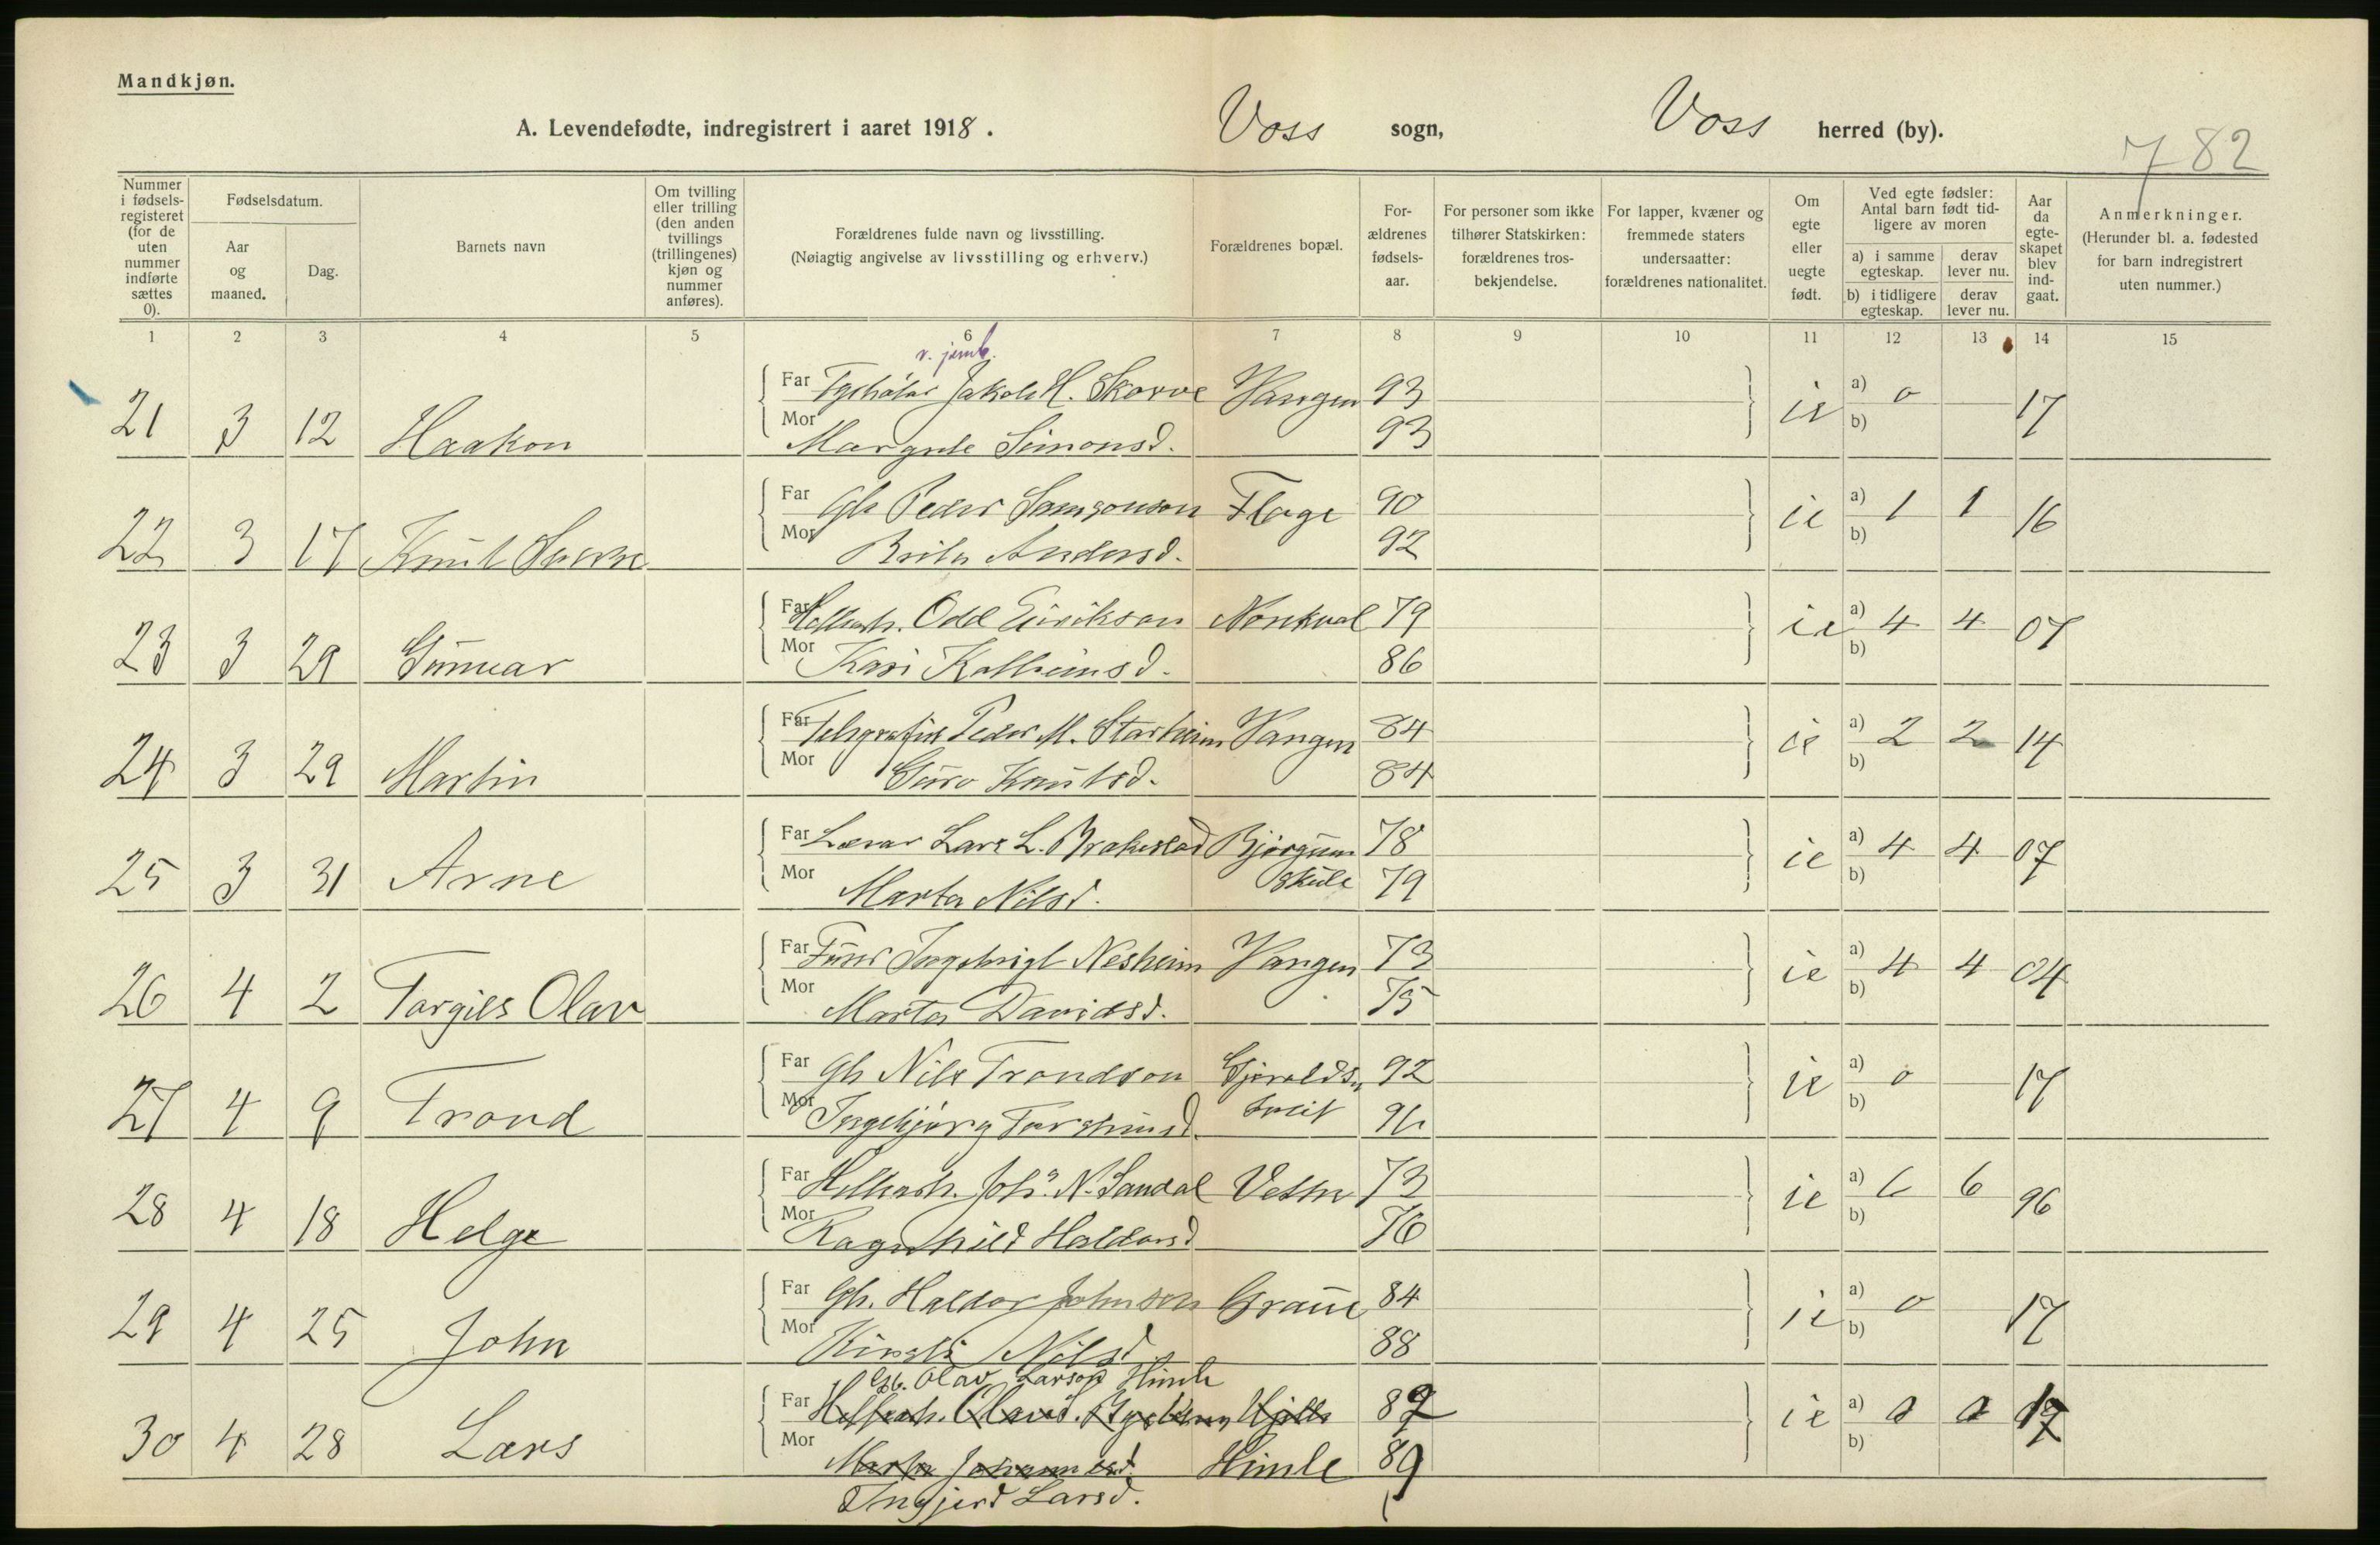 Mandkjøn.
A. Levendefødte, indregistrert i aaret 1918. Voss sogn, Voss herred (by).
782
Nummer i fødsels-registeret (for de uten nummer indførte sættes 0).
Fødselsdatum.
Aar og maaned.
Dag.
Barnets navn
Om tvilling eller trilling (den anden tvillings (trillingenes) kjøn og nummer anføres).
Forældrenes fulde navn og livsstilling.
(Nøiagtig angivelse av livsstilling og erhverv.)
Forældrenes bopæl.
For-ældrenes fødsels-aar.
For personer som ikke tilhører Statskirken: forældrenes tros-bekjendelse.
For lapper, kvæner og fremmede staters undersaatter: forældrenes nationalitet.
Om egte eller uegte født.
Ved egte fødsler: Antal barn født tid-ligere av moren
a) i samme egteskap.
derav lever nu.
b) i tidligere egteskap.
derav lever nu.
Aar da egte-skapet blev ind-gaat.
Anmerkninger.
(Herunder bl. a. fødested for barn indregistrert uten nummer.)
1 2 3 4 5 6 7 8 9 10 11 12 13 14 15
v. jernb.
Far Jakob H. Skorve Vangen 93
21 3 12 Haakon Mor Margrete Simonsd. 93 a) 0 b) 17
Far Gb Peder Samsonson Flage 90
22 3 17 Knut Sverre Mor Brita Andersd. 92 ie a) 1 1 b) 16
Far Odd Eirikson 79
23 3 29 Gunnar Mor Kari 86 ie a) 4 4 b) 07
Far Telegrafist Peder M. Starheim Vangen 84
24 3 29 Martin Mor Guro Knutsd. 84 ie a) 2 2 b) 14
Far Lærar Lars L. Brakestad Bjørgum 78
skule
25 3 31 Arne Mor Marta Nilsd. 79 ie a) 4 4 b) 07
Far Ingebrigt Nesheim Vangen 73
26 4 2 Torgils Olav Mor Marta Davidsd. 75 ie a) 4 4 b) 04
Far Gb Nils Trondson 92
27 4 9 Trond Mor Ingebjørg 96 ie a) 0 b) 17
Far Joh. N. Sandal 73
28 4 18 Helge Mor Ragnhild Haldorsd 76 ie a) 6 6 b) 96
Far Gb. Haldor Johnson Graue 84
29 4 25 John Mor Kirsti Nilsd 88 ie a) 0 b) 17
Gb. Olav Larson Himle
Far 82
30 4 28 Lars Mor Marta Johannesd. Himle 89 ie a) 0 0 b) 17
Ingjerd Larsd.